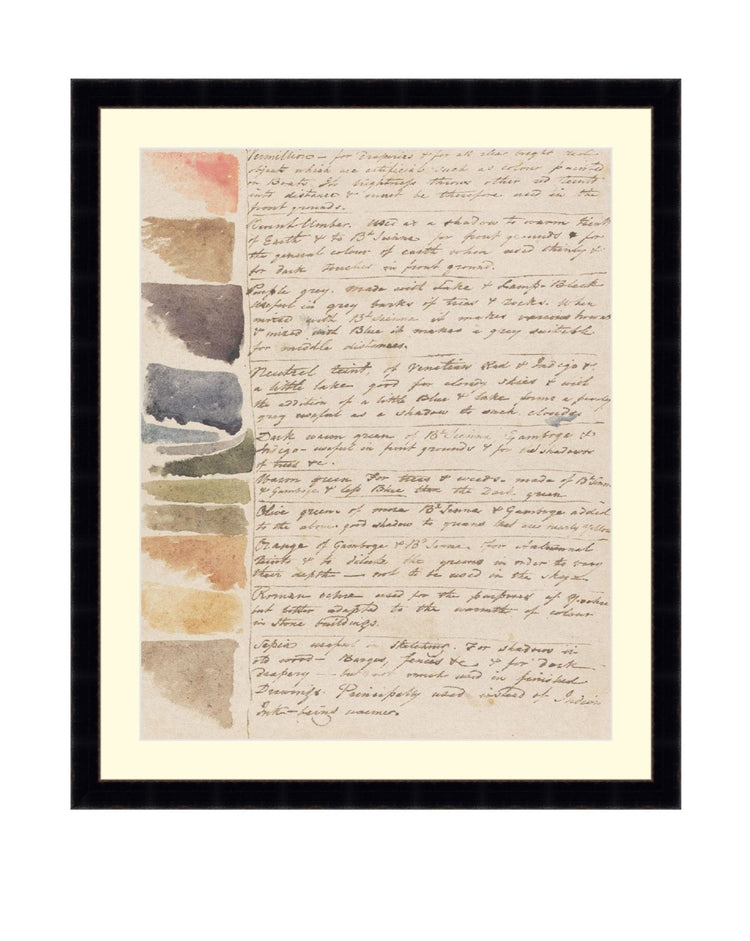 Vermillion – for draperies & for all clear bright red
objects which are artificial such as colour painted
on Boats. Its brightness throws other red teints
into distance & must be therefore used in the
front grounds.
Burnt Umber. Used as a shadow to warm teints
of Earth & to Bt Sienna for front grounds & for
the general colour of earth when used thinly &
for dark touches in front ground.
Purple grey. Made with Lake & Lamp Black
useful in grey barks of trees & rocks. When
mixed with Bt Sienna it makes various browns
& mixed with Blue it makes a grey suitable
for middle distances.
Neutral teint, of Venetian Red & Indigo &
a little lake good for cloudy skies & with
the addition of a little Blue & lake forms a purply
grey useful as a shadow to such clouds.
Dark warm green of Bt Sienna Gamboge &
Indigo – useful in front grounds & for the shadows
of trees &c.
Warm green For trees & weeds. made of Bt Sienna
& Gamboge & less Blue than the Dark green
Olive green. of more Bt Sienna & Gamboge added
to the above. good shadow to greens that are nearly Yellow
Orange of Gamboge & Bt Sienna. for Autumnal
teints & to dilute the greens in order to vary
their depth – not to be used in the skys.
Roman ochre used for the purposes of Y ochre
but better adapted to the warmth of colour
in stone buildings.
Sepia useful in sketching. For shadows in
old wood – Barges, fences &c & for Dark
drapery – but not much used in finished
Drawings. Principally used instead of Indian
Ink – being warmer.